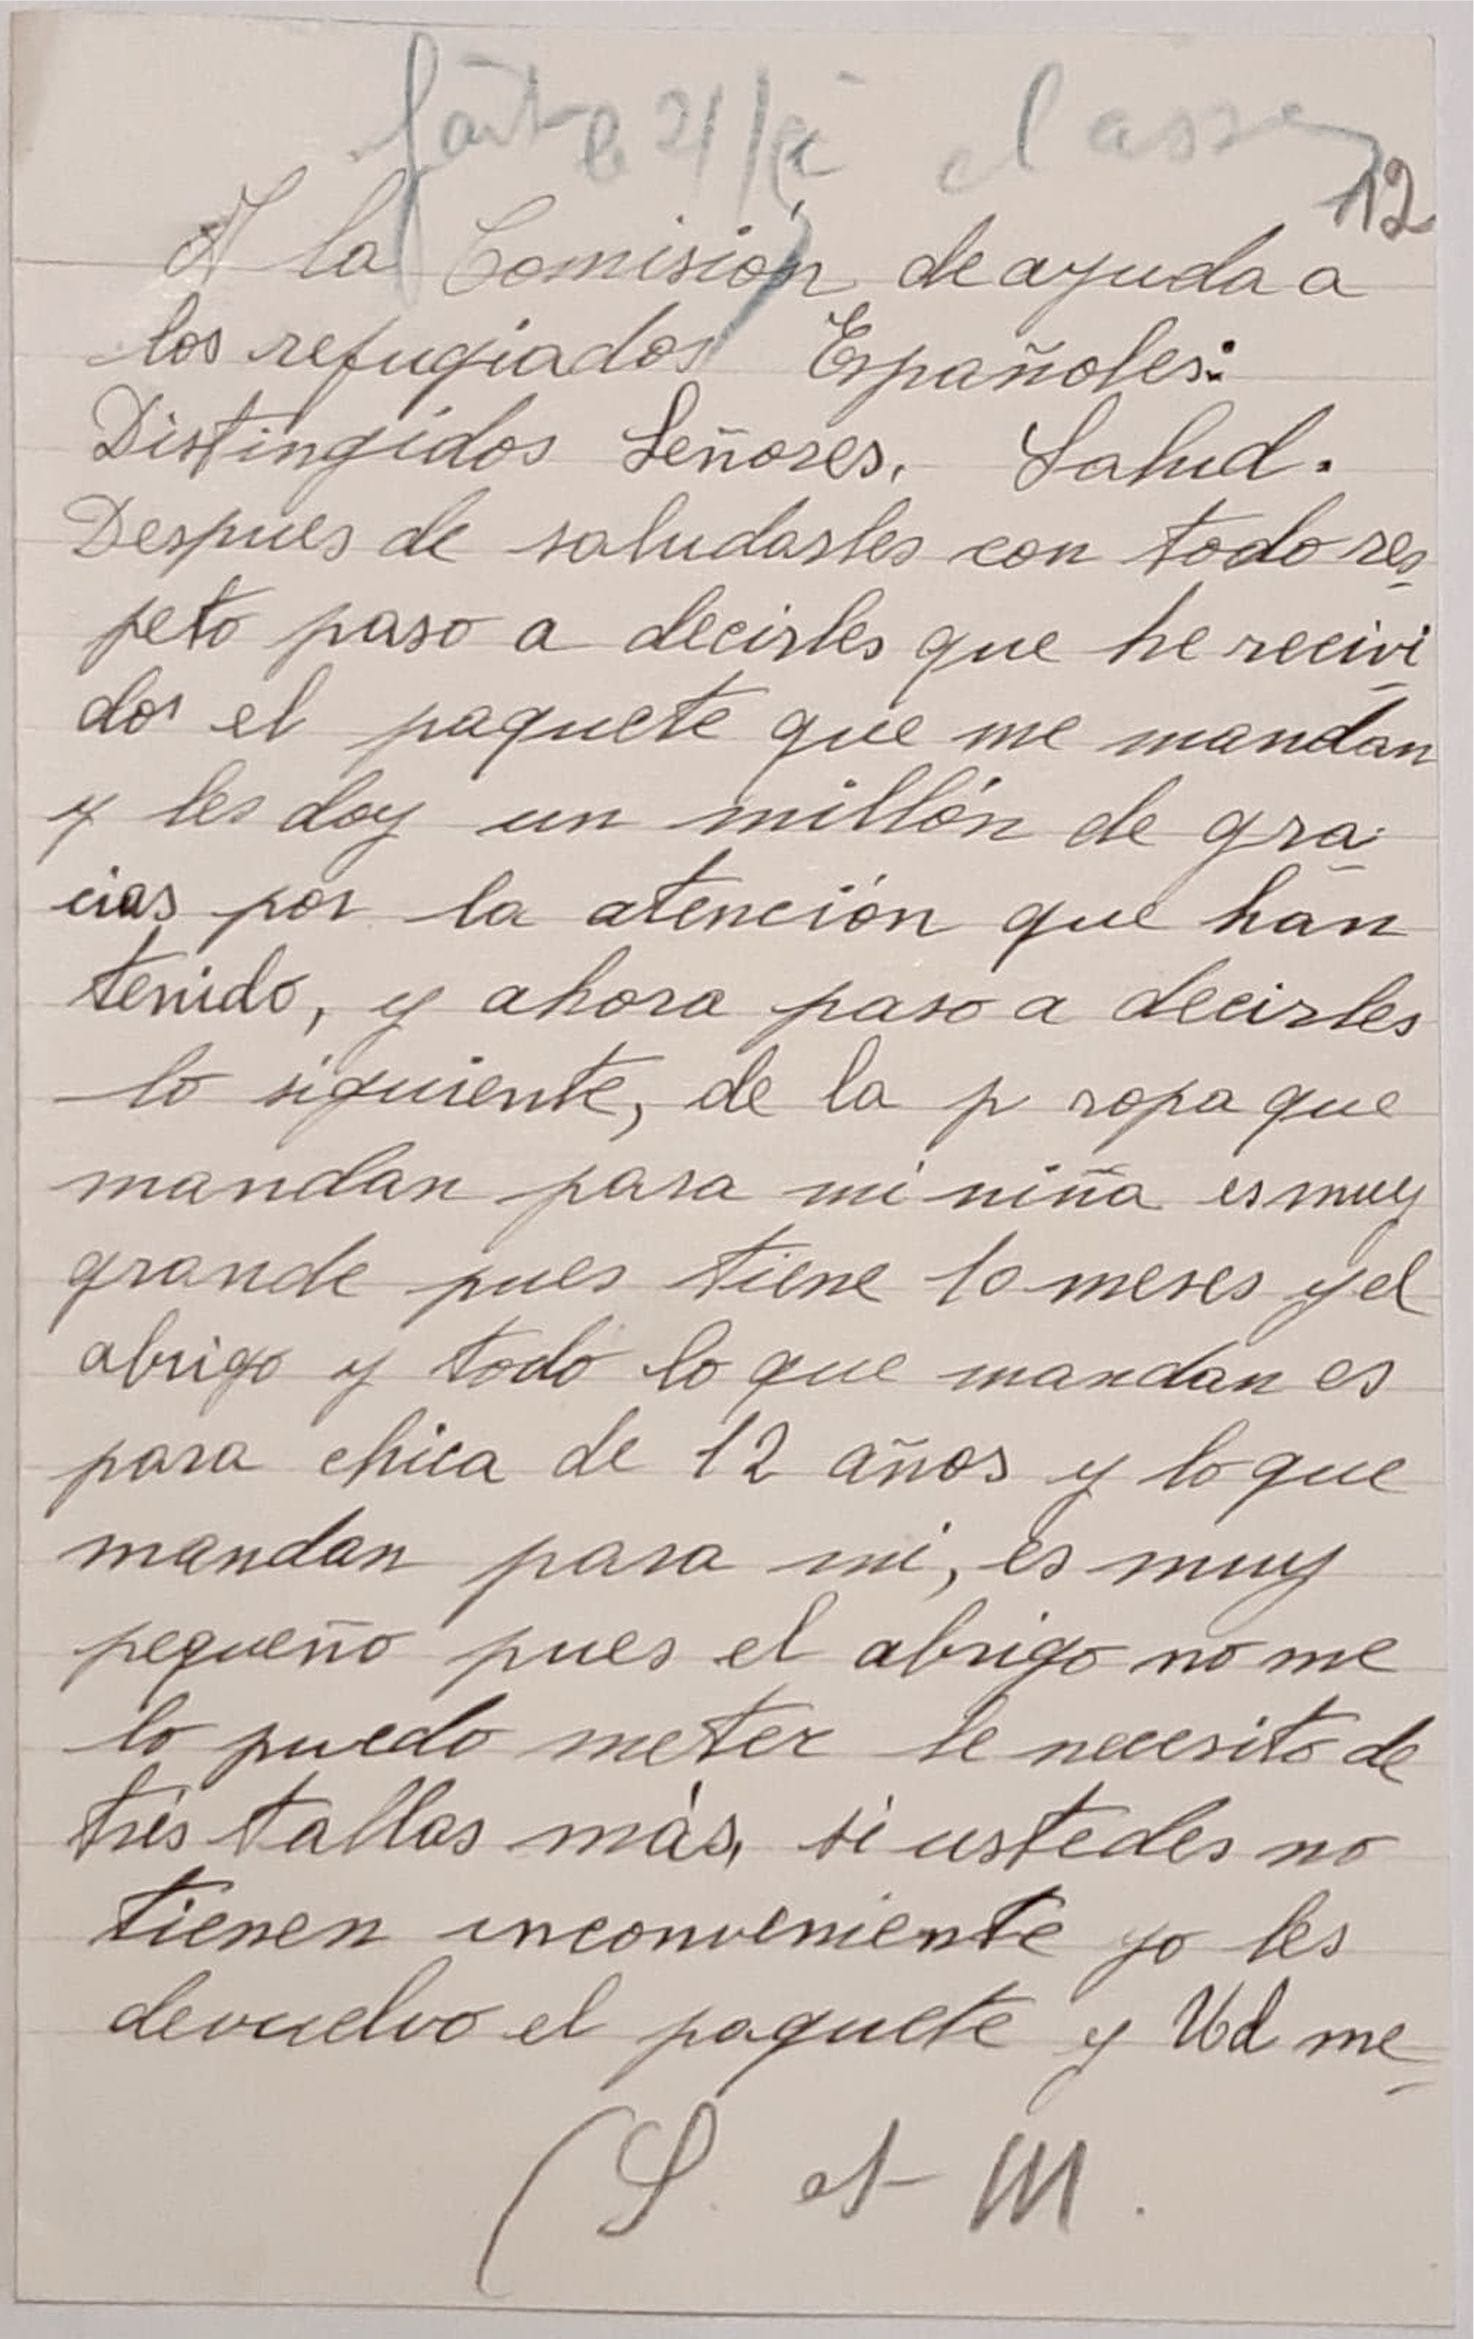 fait le 21/ classer
12
A la Comisión de ayuda a
los refugiados Españoles:
Distingidos Señores. Salud.
Despues de saludarles con todo res
peto paso a decirles que he recivi
dos el paquete que me mandan
y les doy un millón de gra
cias por la atención que han
tenido, y ahora paso a decirles
lo siguiente, de la p ropa que
mandan para mi niña es muy
grande pues tiene 10 meses y el
abrigo y todo lo que mandan es
para chica de 12 años y lo que
mandan para mi, es muy
pequeño pues el abrigo no me
lo puedo meter le necesito de
trés tallas más, si ustedes no
tienen inconveniente yo les
devuelvo el paquete y Ud me
(S. et M.